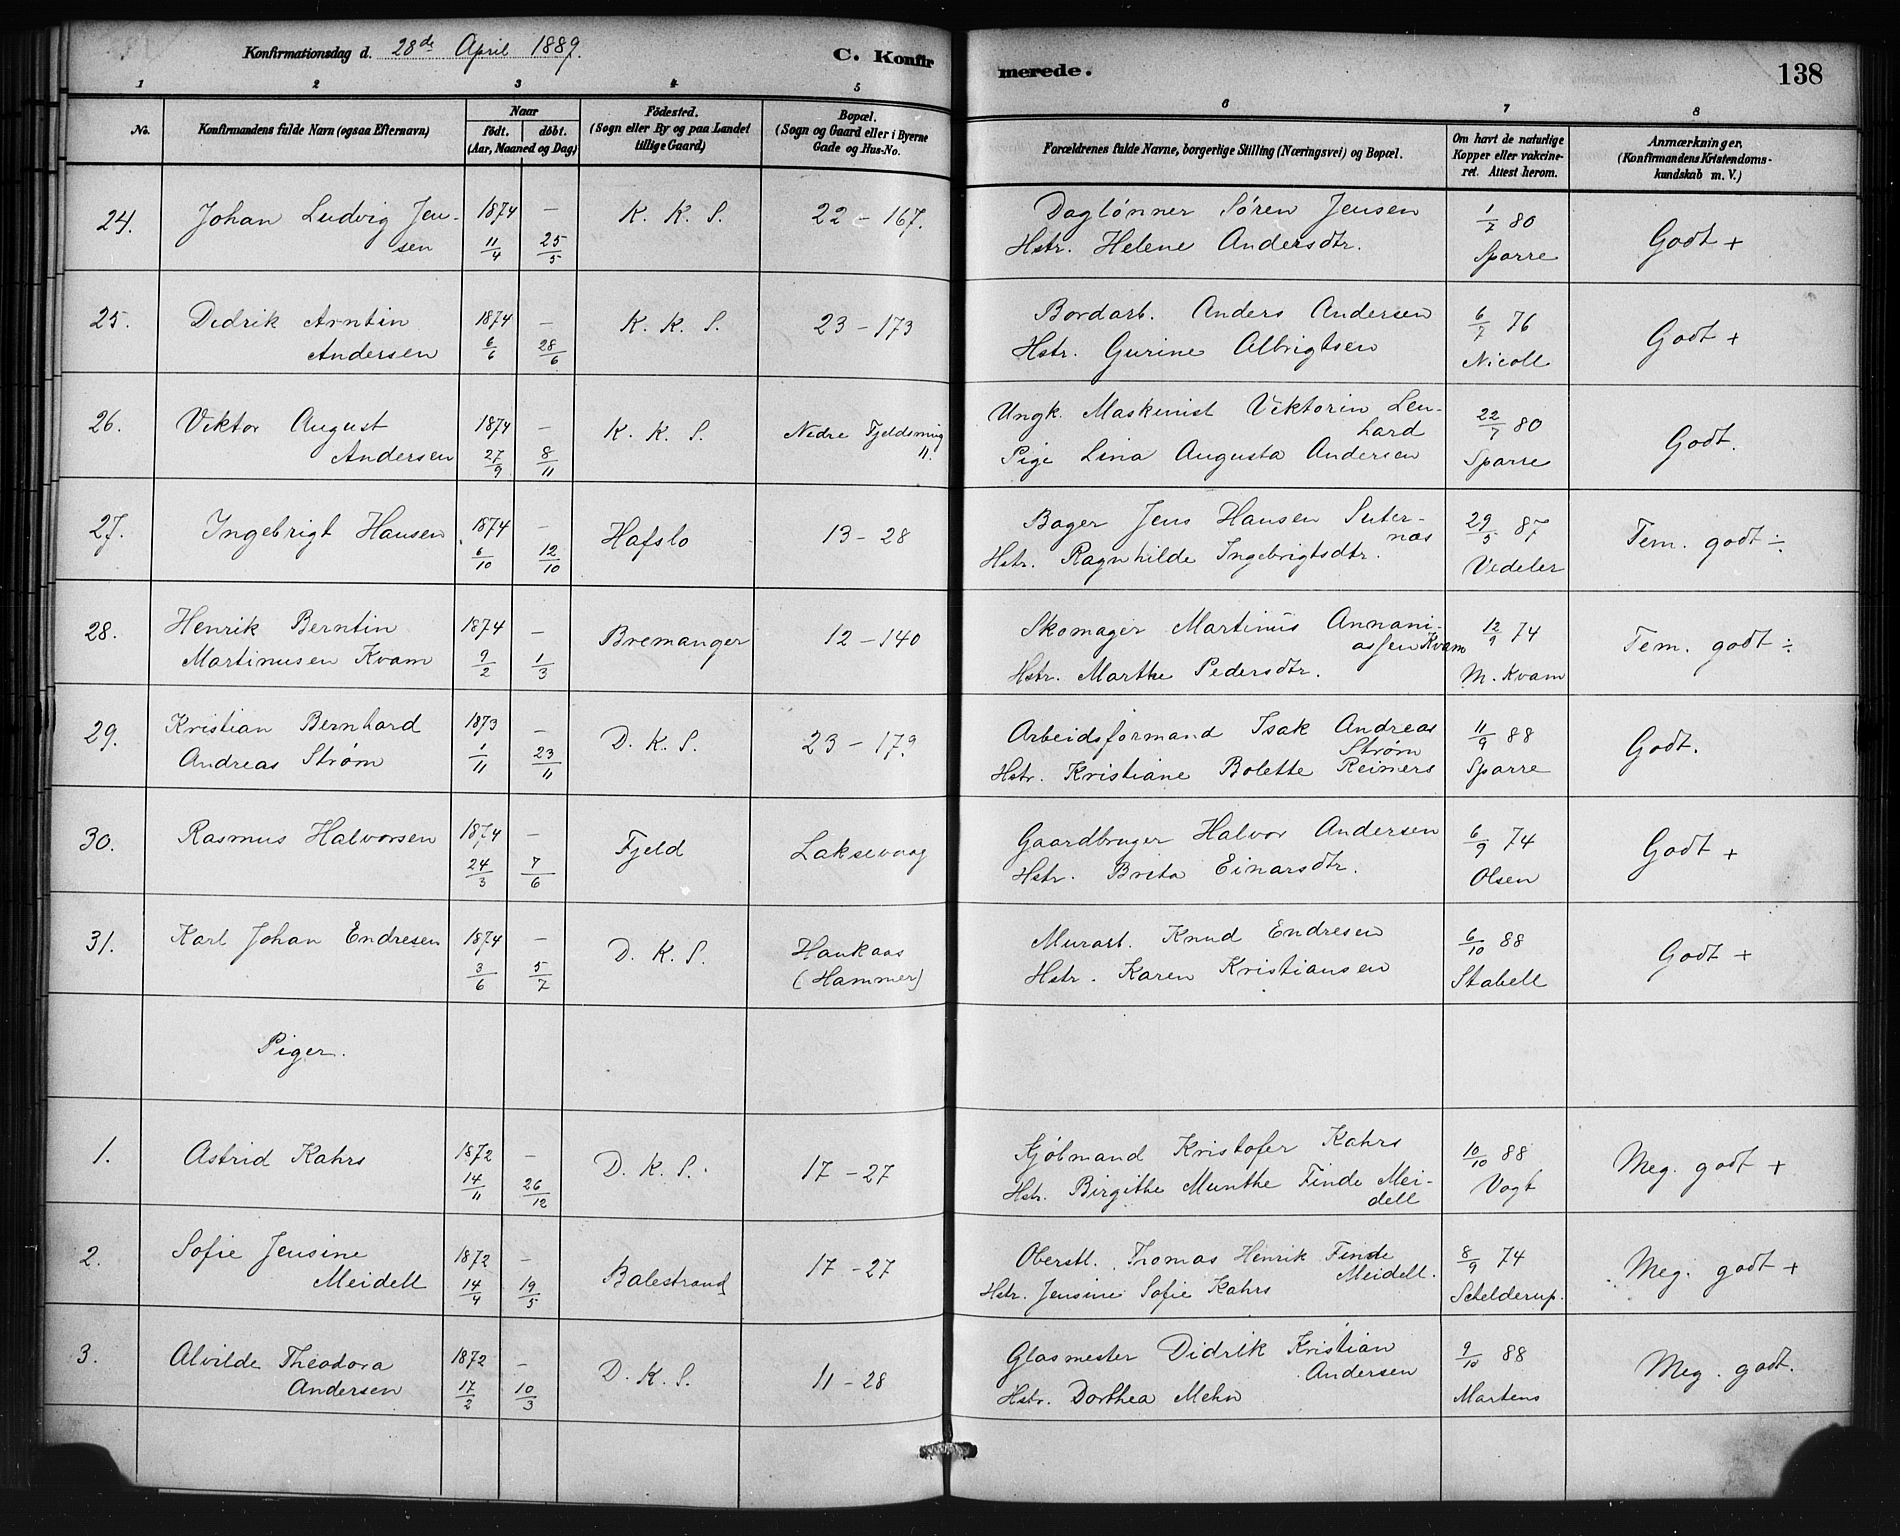 Konfirmationsdag d. 28de April 1889.
C. Konfirmerede.
138
1 2 3 4 5 6 7 8
No.
Konfirmandens fulde Navn (ogsaa Efternavn)
Naar
födt. döbt.
(Aar, Maaned og Dag)
Födested.
(Sogn eller By og paa Landet
tillige Gaard)
Bopæl.
(Sogn og Gaard eller i Byerne
Gade og Hus-No.
Forældrenes fulde Navne, borgerlige Stilling (Næringsvei) og Bopæl.
Om havt de naturlige
Kopper eller vakcine-
ret. Attest herom.
Anmærkninger.
(Konfirmandens Kristendoms-
kundskab m. V.)
24. Johan Ludvig Jen- 1874 — K. K. S. 22 - 167. Daglønner Sören Jensen 1/7 80 Godt +
sen 11/4 25/5 Hstr. Helene Andersdtr. Sparre
25. Didrik Arntin 1874 — K. K. S. 23 - 173 Bordarb. Anders Andersen 6/7 76 Godt +
Andersen 6/6 28/6 Hstr. Gurine Albrigtsen Nicoll
26. Viktor August 1874 — K. K. S. Nedre Fjeldsmug Ungk. Maskinist Viktorin Len- 22/7 80 Godt.
hard
Andersen 27/9 8/11 11. Pige Lina Augusta Andersen Sparre
27. Ingebrigt Hansen 1874 — Hafslo 13 - 28 Bager Jens Hansen Suter- 29/5 87 Tem. godt ÷
næs
6/10 12/10 Hstr. Ragnhilde Ingebrigtsdtr. Vedeler
28. Henrik Berntin 1874 — Bremanger 12 - 140 Skomager Martinus Annani- 12/9 74 Tem. godt ÷
assen Kvam
Martinusen Kvam 9/2 1/3 Hstr. Marthe Pedersdtr. M. Kvam
29. Kristian Bernhard 1873 — D. K. S. 23 - 179 Arbeidsformand Isak Andreas 11/9 88 Godt.
Strøm
Andreas Strøm 1/11 23/11 Hstr. Kristiane Bolette Reimers Sparre
30. Rasmus Halvorsen 1874 — Fjeld Laksevaag Gaardbruger Halvor Andersen 6/9 74 Godt +
24/3 7/6 Hstr. Brita Einarsdtr. Olsen
31. Karl Johan Endresen 1874 — D. K. S. Haukaas Murarb. Knud Endresen 6/10 88 Godt +
3/6 5/7 (Hammer) Hstr. Karen Kristiansen Stabell
Piger.
1. Astrid Kahrs 1872 — D. K. S. 17 - 27 Kjöbmand Kristofer Kahrs 10/10 88 Meg. godt +
14/11 26/12 Hstr. Birgithe Munthe Finde Mei- Vogt
dell
2. Sofie Jensine 1872 — Balestrand 17 - 27 Oberstl. Thomas Henrik Finde 8/9 74 Meg. godt +
Meidell.
Meidell 14/4 19/5 Hstr. Jensine Sofie Kahrs Schelderup.
3. Alvilde Theodora 1872 — D. K. S. 11 - 28 Glasmester Didrik Kristian 9/10 88 Meg. godt.
Andersen
Andersen 17/2 10/3 Hstr. Dorthea Mehn Martens